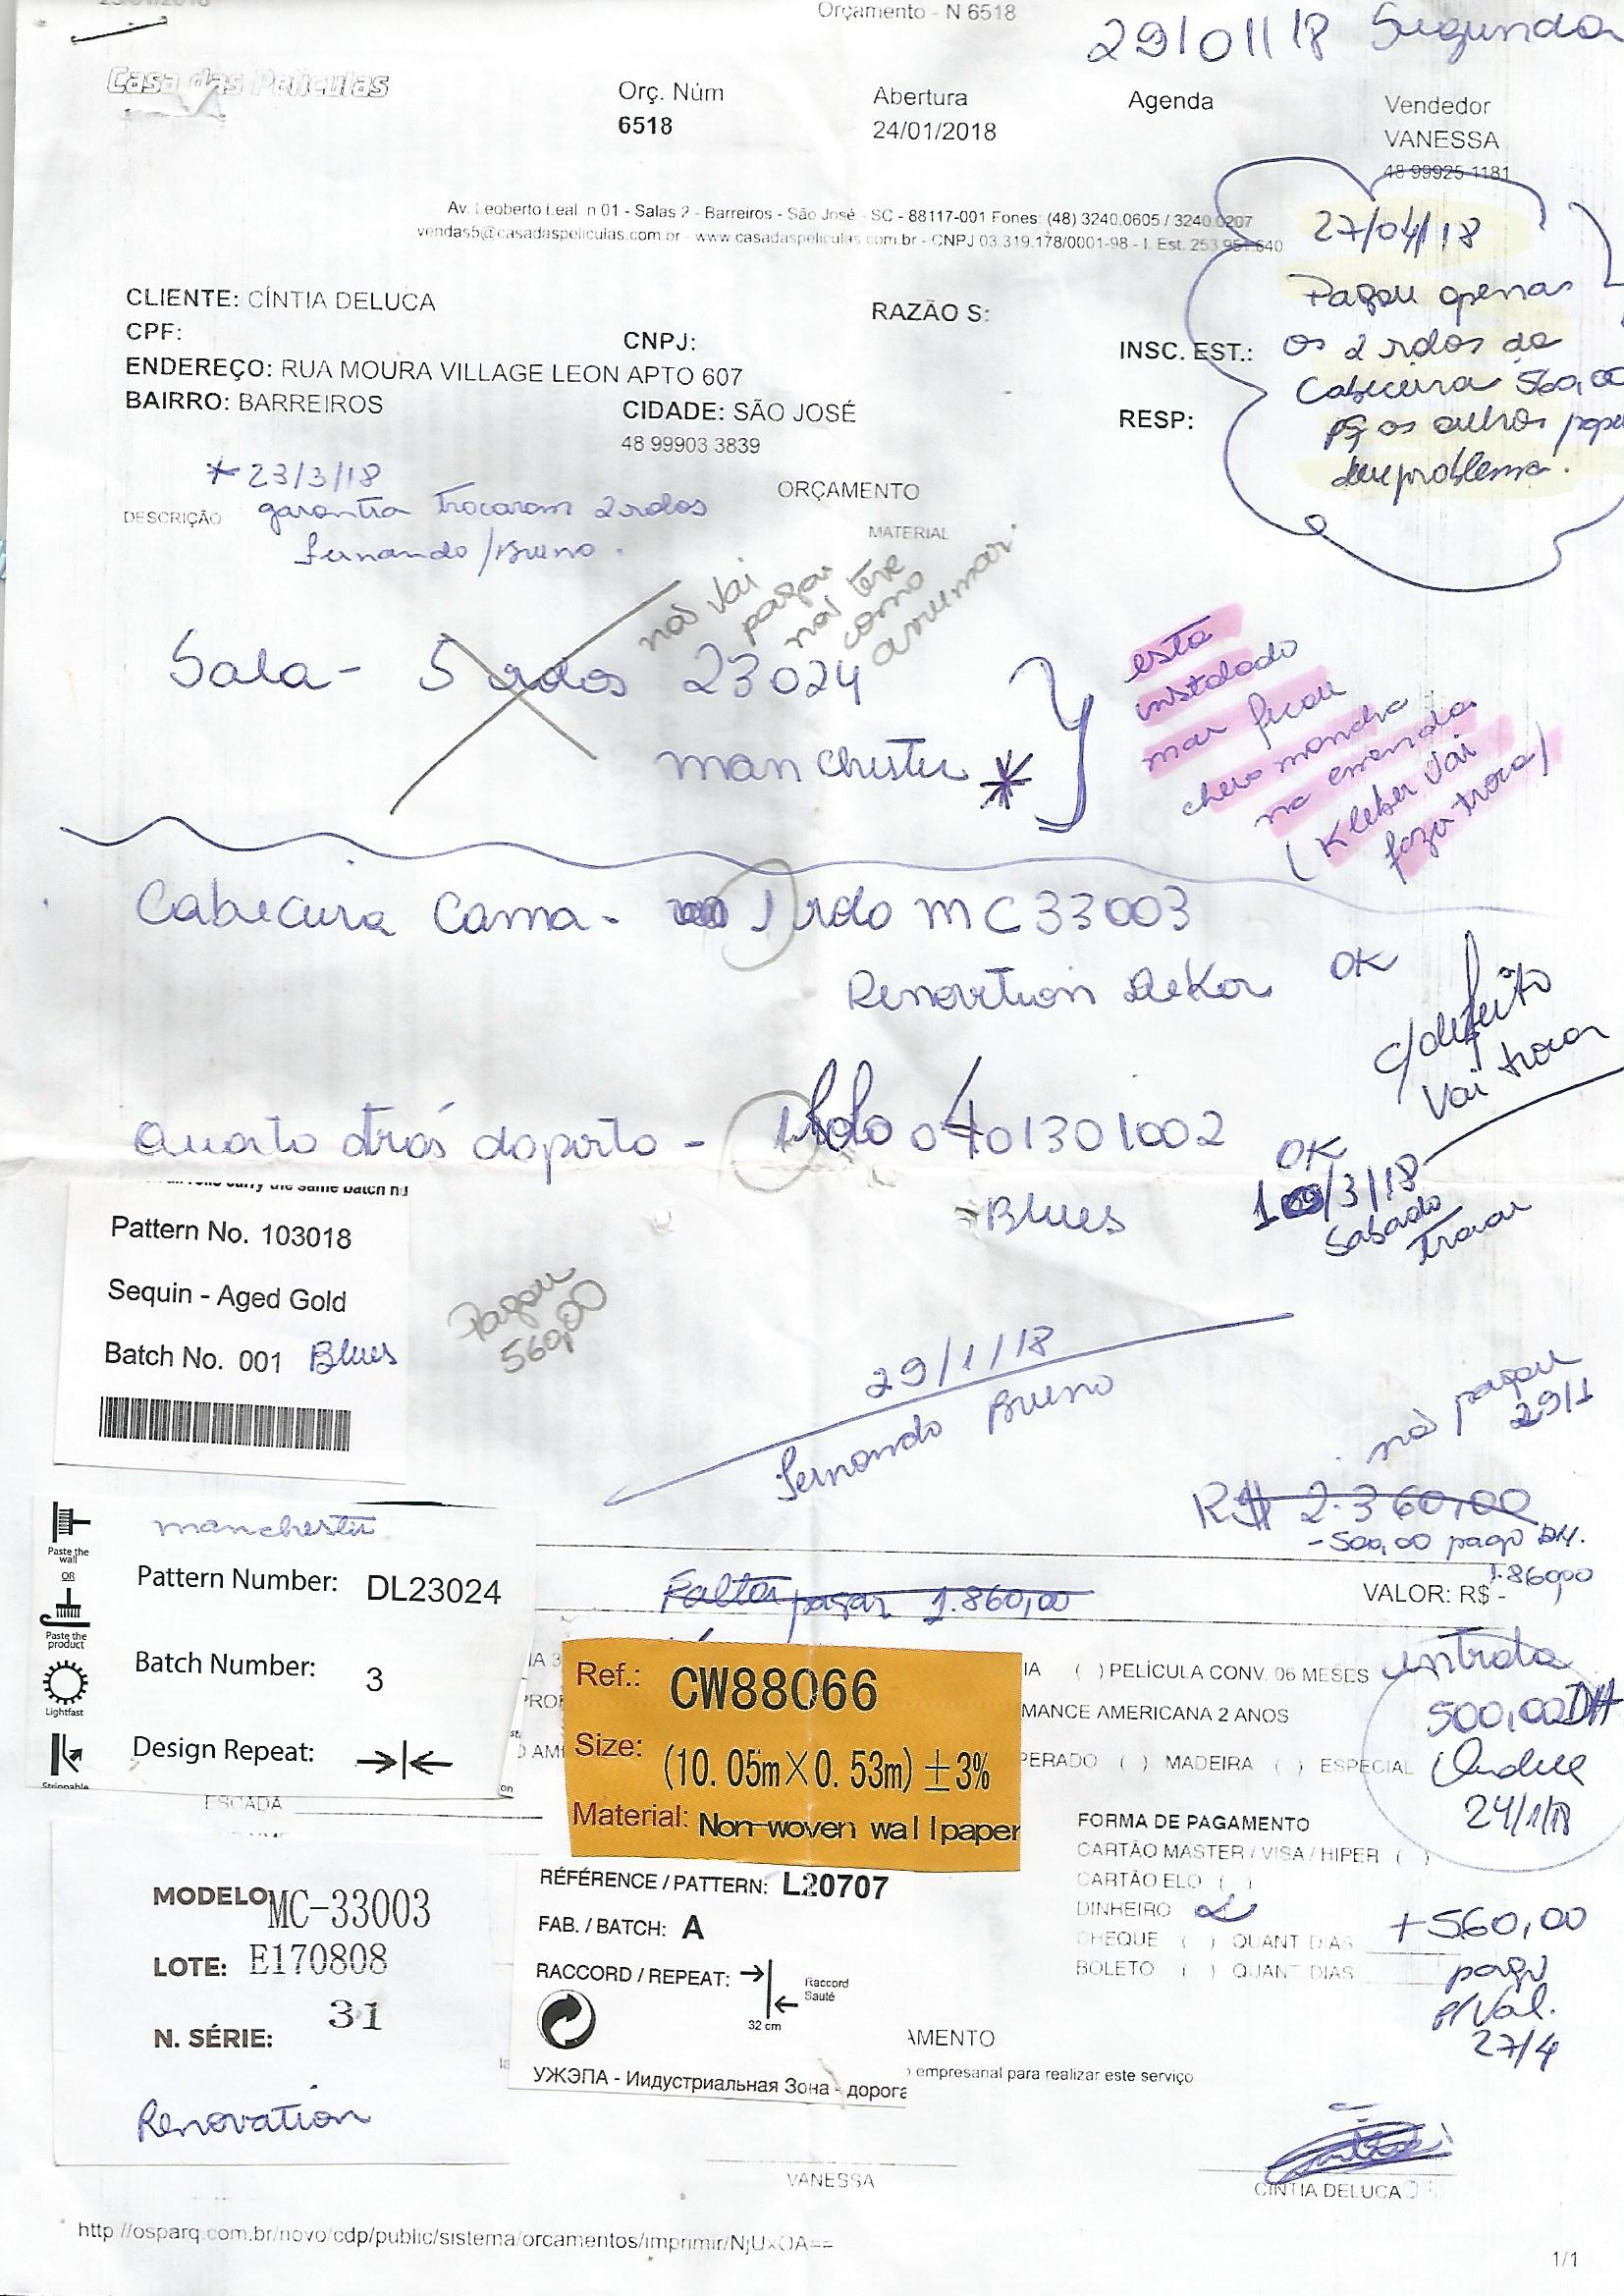 Orçamento - N 6518
29/01/18 Segunda
Casa das Películas
Orç. Núm
6518
Abertura
24/01/2018
Agenda
Vendedor
VANESSA
48 99925-1181
Av. Leoberto Leal n 01 - Salas 2 - Barreiros - São José - SC - 88117-001 Fones: (48) 3240.0605 / 3240.0207
vendas5@casadaspeliculas.com.br - www.casadaspeliculas.com.br - CNPJ 03.319.178/0001-98 - I. Est. 253.951.640
27/04/18
Pagou apenas
os 2 rolos da
Cabeceira 560,00
pq os outros papel
deu problema.
CLIENTE: CÍNTIA DELUCA
RAZÃO S:
CPF:
CNPJ:
INSC. EST.:
ENDEREÇO: RUA MOURA VILLAGE LEON APTO 607
BAIRRO: BARREIROS
CIDADE: SÃO JOSÉ
RESP:
48 99903 3839
* 23/3/18
garantia trocaram 2 rolos
Fernando / Bruno.
ORÇAMENTO
DESCRIÇÃO
MATERIAL
não vai
pagar
não teve
como
arrumar
Sala - 5 rolos 23024
manchester *
esta
instalado
mas ficou
cheio mancha
na emenda
(Kleber vai
fazer troca)
Cabeceira Cama - 1 rolo MC33003
Renovation Dekor OK
c/ defeito
Vai trocar
Quarto atrás da porta - 1 Rolo 0401301002
Blues
OK
10/3/18
Sabado
trocar
all rolls carry the same batch n
Pattern No. 103018
Sequin - Aged Gold
Batch No. 001 Blues
Pagou
560,00
29/1/18
Fernando Bruno
não pagou
29/1
R$ 2.360,00
-500,00 pago DH.
1.860,00
VALOR: R$ -
Falta pagar 1.860,00
manchester
Paste the wall
OR
Paste the product
Lightfast
Strippable
Pattern Number: DL23024
Batch Number: 3
Design Repeat:
Ref.: CW88066
Size: (10.05m×0.53m)±3%
Material: Non-woven wallpaper
IA ( ) PELÍCULA CONV. 06 MESES
MANCE AMERICANA 2 ANOS
PERADO ( ) MADEIRA ( ) ESPECIAL
entrada
500,00 DH
24/1/18
ESCADA
FORMA DE PAGAMENTO
CARTÃO MASTER / VISA / HIPER ( )
CARTÃO ELO ( )
DINHEIRO
CHEQUE ( ) QUANT DIAS
BOLETO ( ) QUANT DIAS
+560,00
pago
p/ Val.
27/4
MODELO MC-33003
LOTE: E170808
N. SÉRIE: 31
Renovation
RÉFÉRENCE / PATTERN: L20707
FAB. / BATCH: A
RACCORD / REPEAT:
Raccord
Sauté
32 cm
УЖЭПА - Индустриальная Зона - дорога
AMENTO
empresarial para realizar este serviço
VANESSA
CÍNTIA DELUCA
http://osparq.com.br/novo/cdp/public/sistema/orcamentos/imprimir/NjUxOA==
1/1